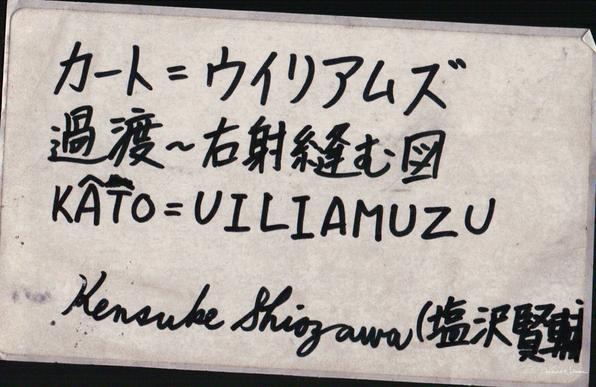 カート=ウイリアムズ
過渡~右射縫む図
KÂTO=UILIAMUZU
Kensuke Shiozawa (塩沢賢輔